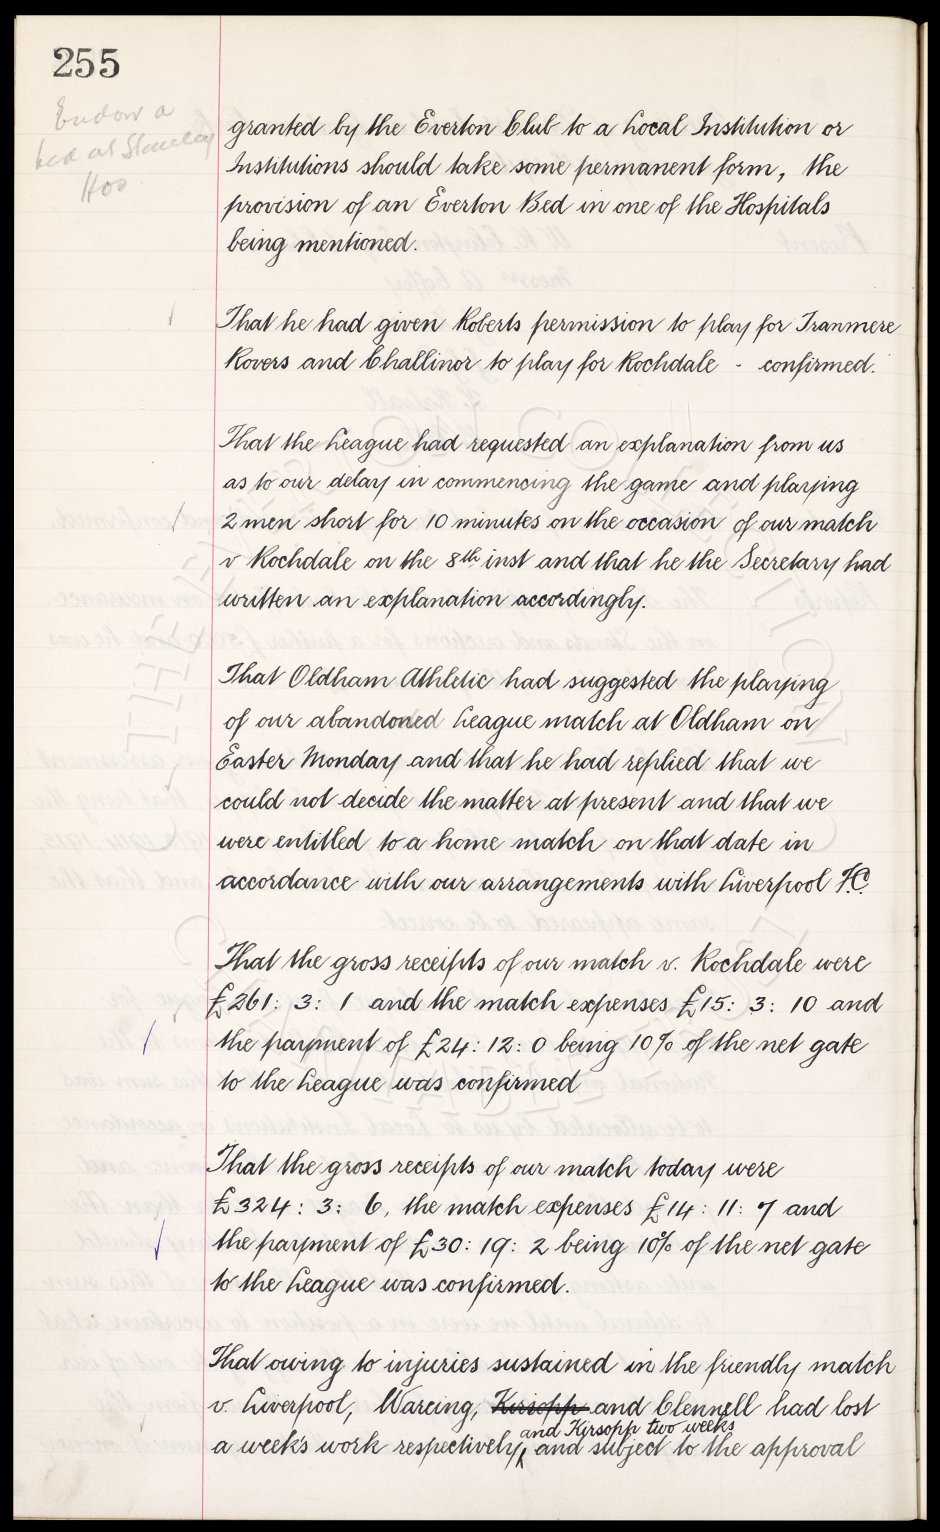 255
Endow a
bed at Stanley
Hos
granted by the Everton Club to a Local Institution or
Institutions should take some permanent form, the
provision of an Everton Bed in one of the Hospitals
being mentioned.
That he had given Roberts permission to play for Tranmere
Rovers and Challinor to play for Rochdale - confirmed.
That the League had requested an explanation from us
as to our delay in commencing the game and playing
2 men short for 10 minutes on the occasion of our match
v Rochdale on the 8th inst and that he the Secretary had
written an explanation accordingly.
That Oldham Athletic had suggested the playing
of our abandoned League match at Oldham on
Easter Monday and that he had replied that we
could not decide the matter at present and that we
were entitled to a home match on that date in
accordance with our arrangements with Liverpool F.C.
That the gross receipts of our match v. Rochdale were
£261: 3: 1 and the match expenses £15: 3: 10 and
the payment of £24: 12: 0 being 10% of the net gate
to the League was confirmed
That the gross receipts of our match today were
£324: 3: 6, the match expenses £14: 11: 7 and
the payment of £30: 19: 2 being 10% of the net gate
to the League was confirmed.
That owing to injuries sustained in the friendly match
v. Liverpool, Wareing, Kirsopp and Clennell had lost
and Kirsopp two weeks
a week's work respectively, and subject to the approval